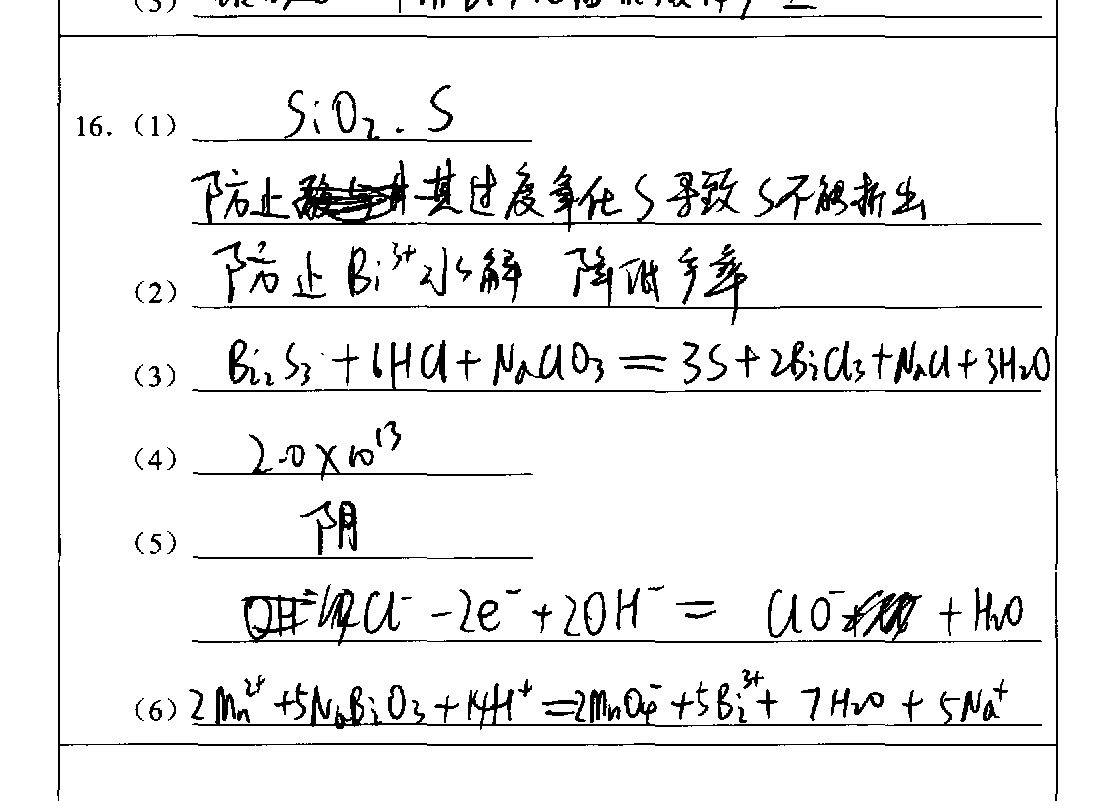 16.（1） SiO₂. S
防止其过度氧化S导致S不能析出
（2） 防止Bi³⁺水解 降低产率
（3） Bi₂S₃+6HCl+NaClO₃=3S+2BiCl₃+NaCl+3H₂O
（4） 2.0×10¹³
（5） 阴
Cl⁻-2e⁻+2OH⁻= ClO⁻+H₂O
（6） 2Mn²⁺+5NaBiO₃+14H⁺=2MnO₄⁻+5Bi³⁺+7H₂O+5Na⁺